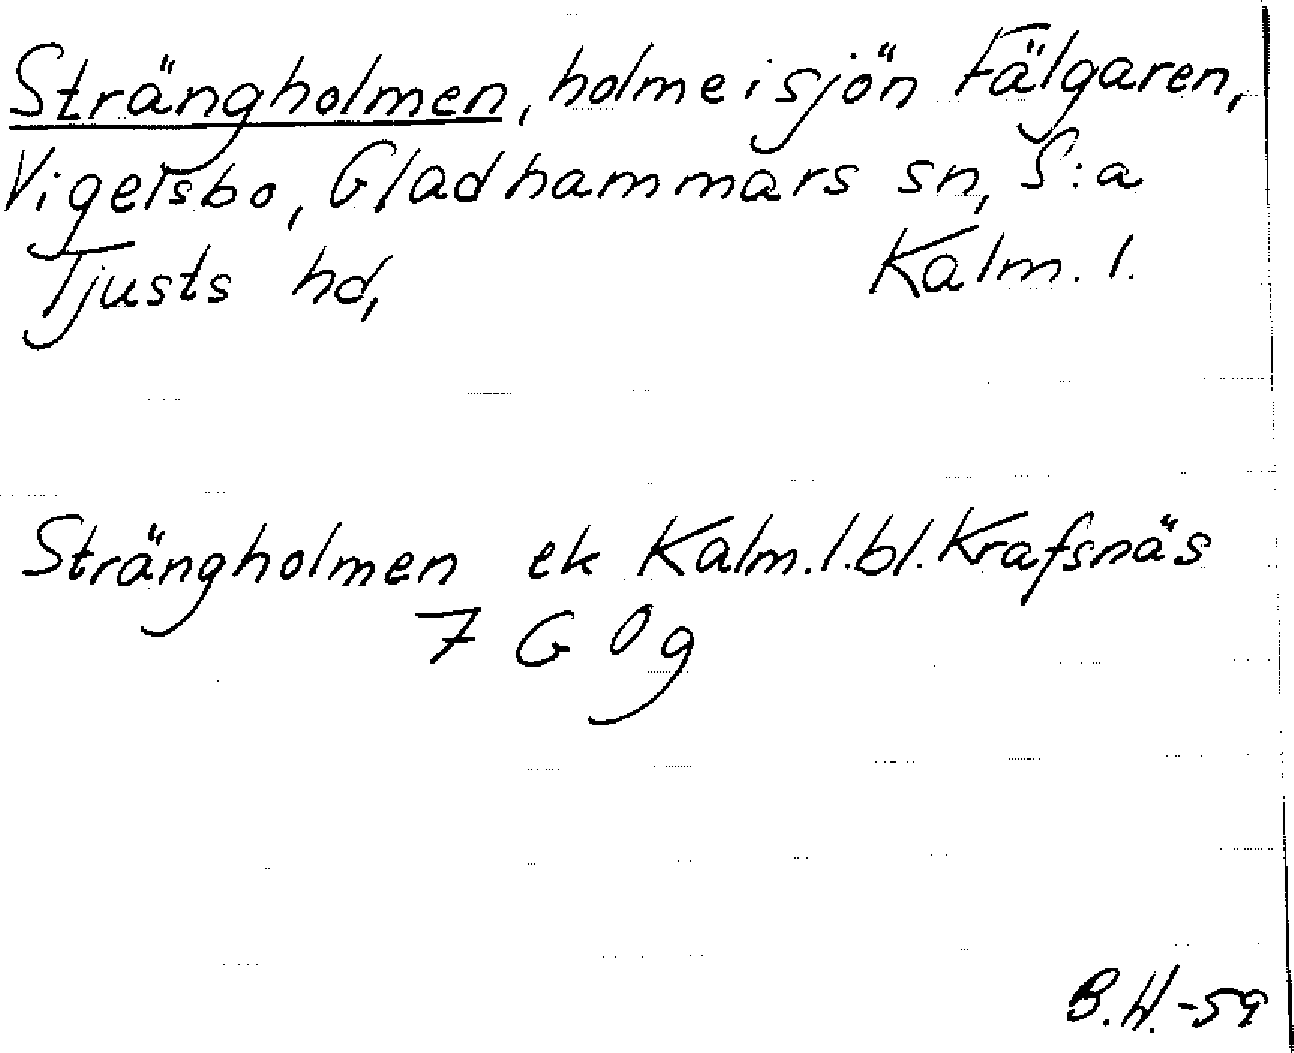 Strängholmen, holme i sjön Fälgaren,
Vigelsbo, Gladhammars sn, S:a
Tjusts hd, Kalm. l.
Strängholmen ek Kalm. l. bl. Krafsnäs
7 G Ög
B.H.-59